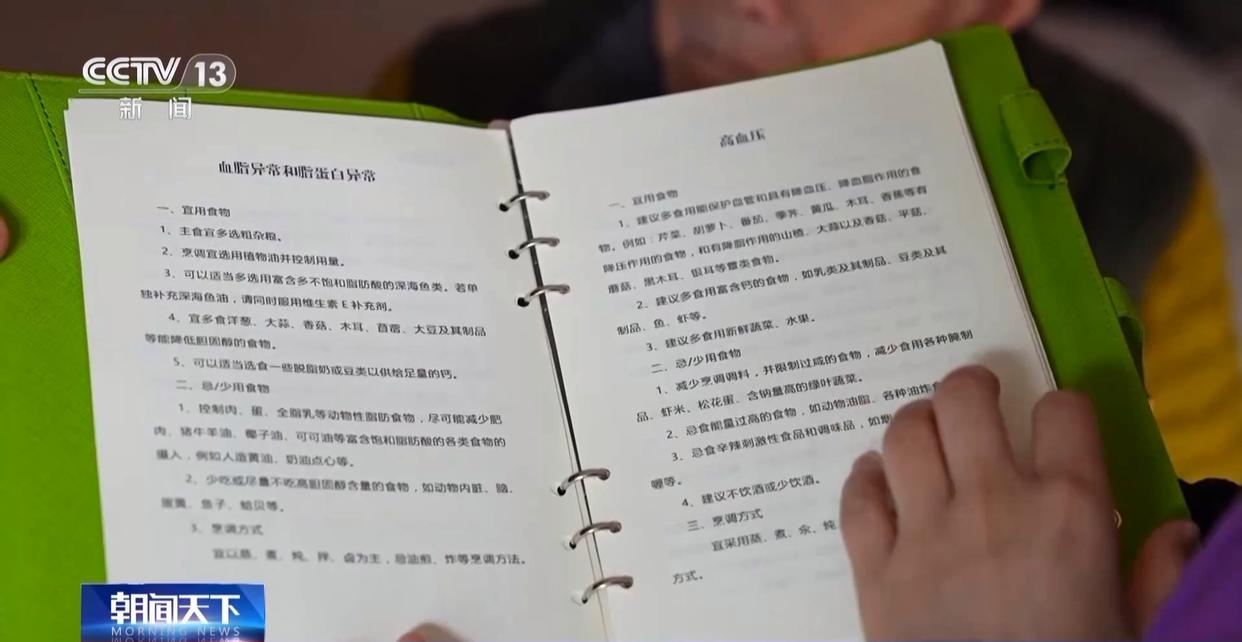 CCTV 13
新闻
血脂异常和脂蛋白异常
一、宜用食物
1、主食宜多选粗杂粮。
2、烹调宜选用植物油并控制用量。
3、可以适当多选用富含多不饱和脂肪酸的深海鱼类。若单
独补充深海鱼油，请同时服用维生素E补充剂。
4、宜多食洋葱、大蒜、香菇、木耳、苜蓿、大豆及其制品
等能降低胆固醇的食物。
5、可以适当选食一些脱脂奶或豆类以供给足量的钙。
二、忌/少用食物
1、控制肉、蛋、全脂乳等动物性脂肪食物，尽可能减少肥
肉、猪牛羊油、椰子油、可可油等富含饱和脂肪酸的各类食物的
摄入，例如人造黄油、奶油点心等。
2、少吃或尽量不吃高胆固醇含量的食物，如动物内脏、脑、
蛋黄、鱼子、蛤贝等。
3、烹调方式
宜以蒸、煮、炖、拌、卤为主，忌油煎、炸等烹调方法。
高血压
一、宜用食物
1、建议多食用能保护血管和具有降血压、降血脂作用的食
物。例如：芹菜、胡萝卜、番茄、荸荠、黄瓜、木耳、香蕉等有
降压作用的食物，和有降脂作用的山楂、大蒜以及香菇、平菇、
蘑菇、黑木耳、银耳等蕈类食物。
2、建议多食用富含钙的食物，如乳类及其制品、豆类及其
制品、鱼、虾等。
3、建议多食用新鲜蔬菜、水果。
二、忌/少用食物
1、减少烹调调料，并限制过咸的食物，减少食用各种腌制
品、虾米、松花蛋、含钠量高的绿叶蔬菜。
2、忌食能量过高的食物，如动物油脂、各种油炸
3、忌食辛辣刺激性食品和调味品，如
喱等。
4、建议不饮酒或少饮酒。
三、烹调方式
宜采用蒸、煮、汆、炖
方式。
朝闻天下
MORNING NEWS